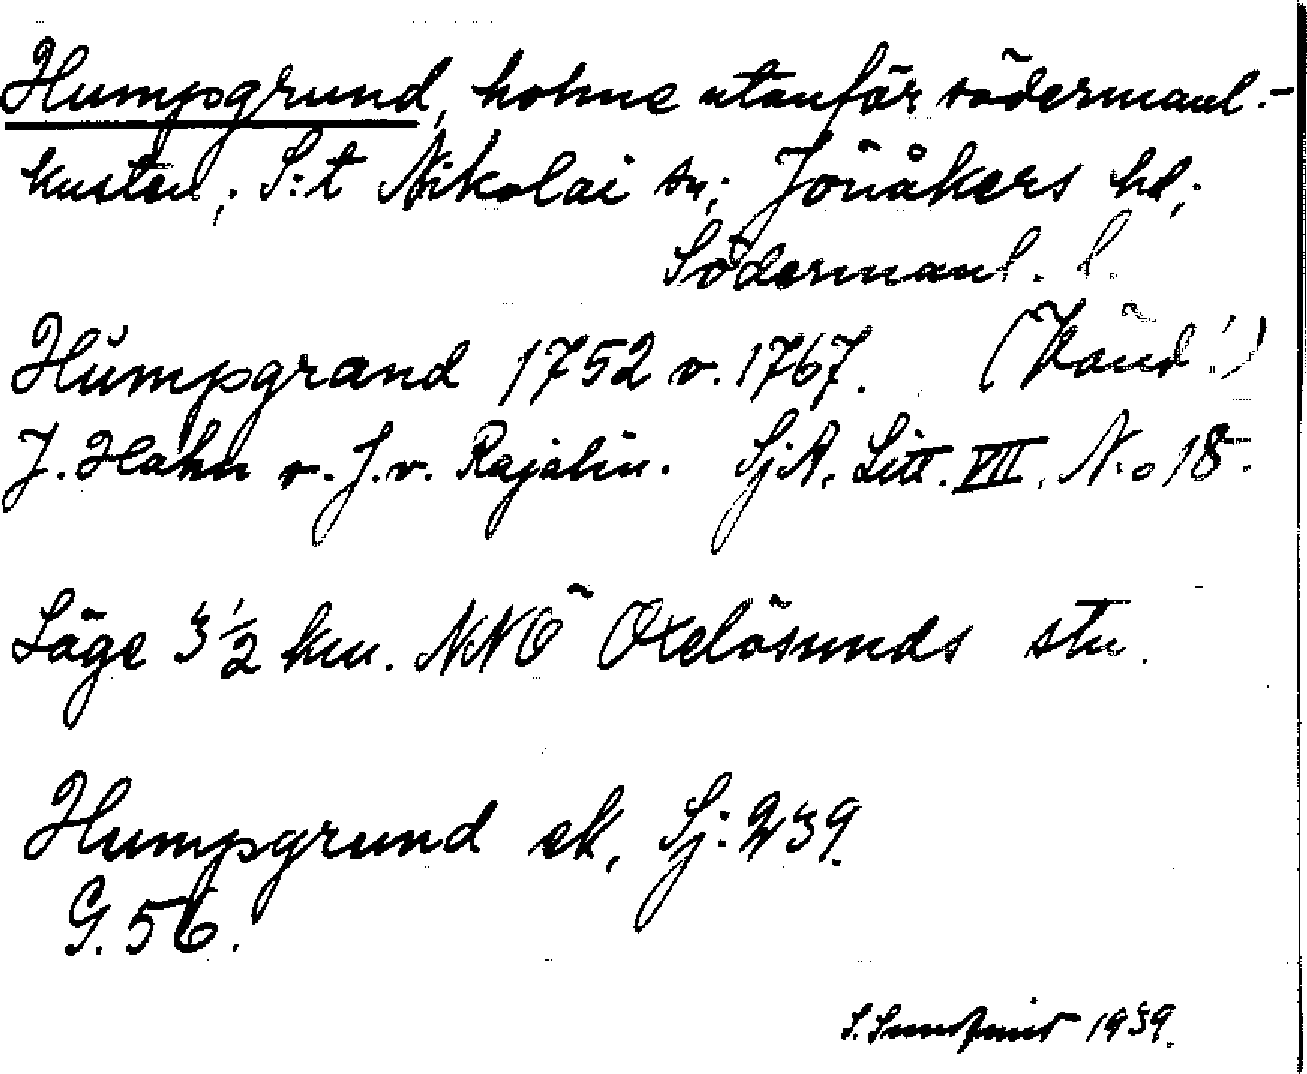 Humpgrund, holme utanför södermanl.-
kusten; S:t Nikolai sn; Jönåkers hd;
Södermanl. l.
Humpgrand 1752 o. 1767. (Känd!)
J. Hahn o. J. v. Rajalin. SjA. Litt. VII. N:o 18.
Läge 3 1/2 km. NNÖ Oxelösunds stn.
Humpgrund ek, Sj: 239.
G. 56.
S. Sundqvist 1939.